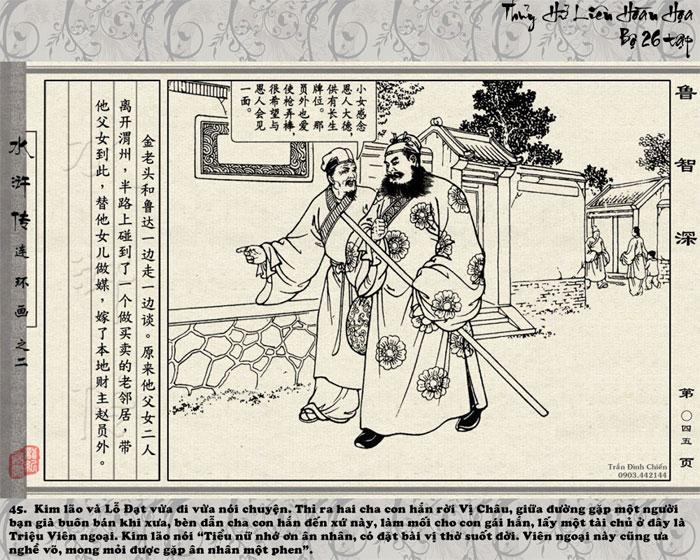 Thủy Hử Liên Hoàn Họa
Bộ 26 tập
鲁智深
第〇四五页
水浒传连环画之二
小女感念
恩人大德，
供有长生
牌位。那
员外也爱
使枪弄棒，
很希望与
恩人会见
一面。
金老头和鲁达一边走一边谈。原来他父女二人
离开渭州，半路上碰到了一个做买卖的老邻居，带
他父女到此，替他女儿做媒，嫁了本地财主赵员外。
Trần Đình Chiến
0903.442144
45. Kim lão và Lỗ Đạt vừa đi vừa nói chuyện. Thì ra hai cha con hắn rời Vị Châu, giữa đường gặp một người
bạn già buôn bán khi xưa, bèn dẫn cha con hắn đến xứ này, làm mối cho con gái hắn, lấy một tài chủ ở đây là
Triệu Viên ngoại. Kim lão nói “Tiểu nữ nhớ ơn ân nhân, có đặt bài vị thờ suốt đời. Viên ngoại này cũng ưa
nghề võ, mong mỏi được gặp ân nhân một phen”.